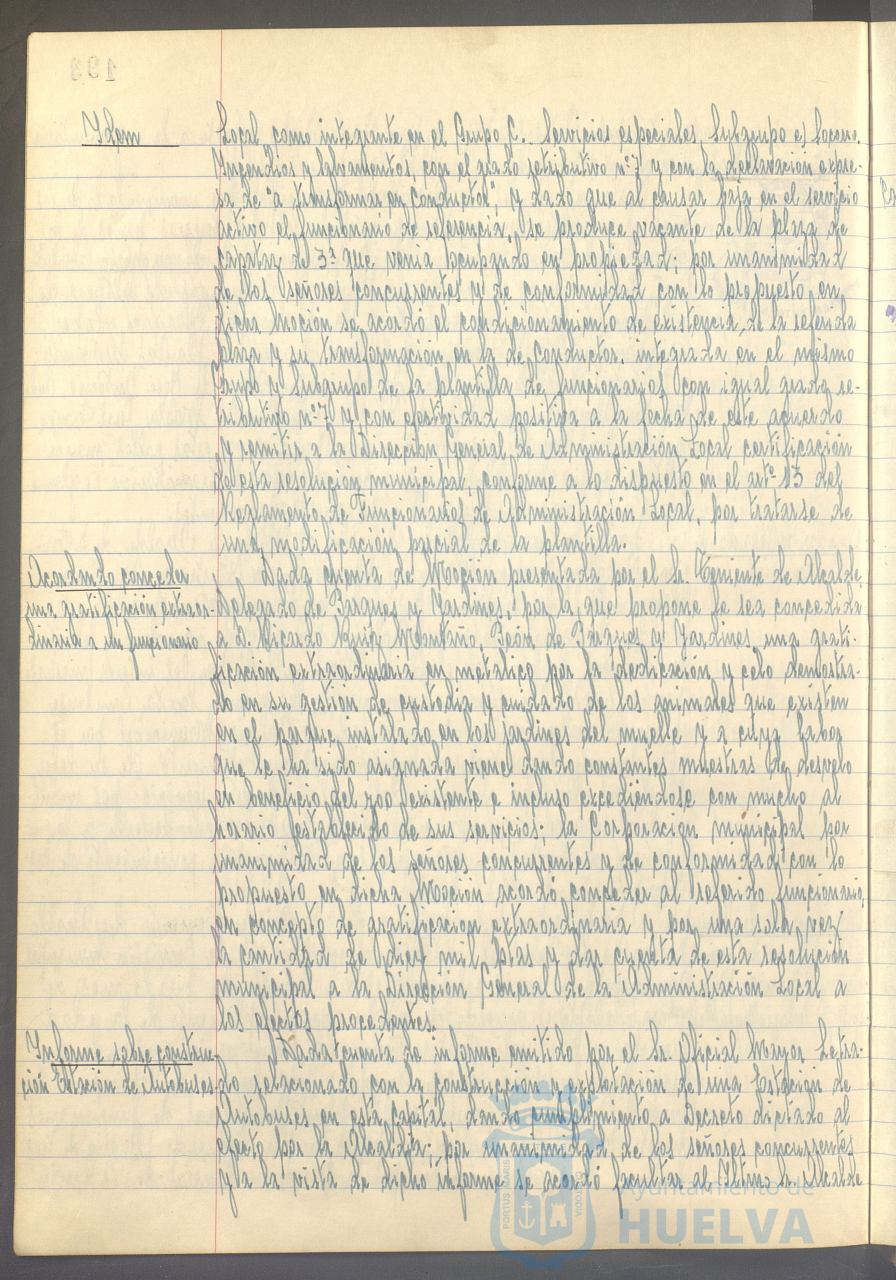 Idem
Local como integrante en el Grupo C. Servicios especiales, Subgrupo e) Socorro,
Incendios y Salvamentos, con el grado retributivo nº 7 y con la declaración expre-
sa de "a transformar en Conductor", y dado que al causar baja en el servicio
activo el funcionario de referencia, se produce vacante de la plaza de
Capataz de 3ª que venía ocupando en propiedad; por unanimidad
de los señores concurrentes y de conformidad con lo propuesto en
dicha Moción se acordó el condicionamiento de existencia de la referida
plaza y su transformación en la de Conductor, integrada en el mismo
Grupo y Subgrupo de la plantilla de funcionarios con igual grado re-
tributivo nº 7 y con efectividad positiva a la fecha de este acuerdo
y remitir a la Dirección General de Administración Local certificación
de esta resolución municipal, conforme a lo dispuesto en el artº 13 del
Reglamento de Funcionarios de Administración Local, por tratarse de
una modificación parcial de la plantilla.
Acordando conceder
una gratificación extraor-
dinaria a un funcionario
Dada cuenta de Moción presentada por el Sr. Teniente de Alcalde,
Delegado de Parques y Jardines, por la que propone le sea concedida
a D. Ricardo Ruiz Montaño, Peón de Parques y Jardines una grati-
ficación extraordinaria en metálico por la dedicación y celo demostra-
do en su gestión de custodia y cuidado de los animales que existen
en el parque instalado en los jardines del muelle y a cuya labor
que le ha sido asignada viene dando constantes muestras de desvelo
en beneficio del zoo existente e incluso excediéndose con mucho al
horario establecido de sus servicios; la Corporación municipal por
unanimidad de los señores concurrentes y de conformidad con lo
propuesto en dicha Moción acordó conceder al referido funcionario,
en concepto de gratificación extraordinaria y por una sola vez
la cantidad de diez mil ptas y dar cuenta de esta resolución
municipal a la Dirección General de la Administración Local a
los efectos procedentes.
Informe sobre construc-
ción Estación de Autobuses
Dada cuenta de informe emitido por el Sr. Oficial Mayor Letra-
do relacionado con la construcción y explotación de una Estación de
Autobuses en esta capital, dando cumplimiento a Decreto dictado al
efecto por la Alcaldía; por unanimidad de los señores concurrentes
y a la vista de dicho informe se acordó facultar al Iltmo. Sr. Alcalde
PORTUS MARIS
CUSTODIA
Ayuntamiento de
HUELVA